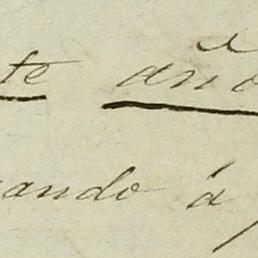 te año
ando á